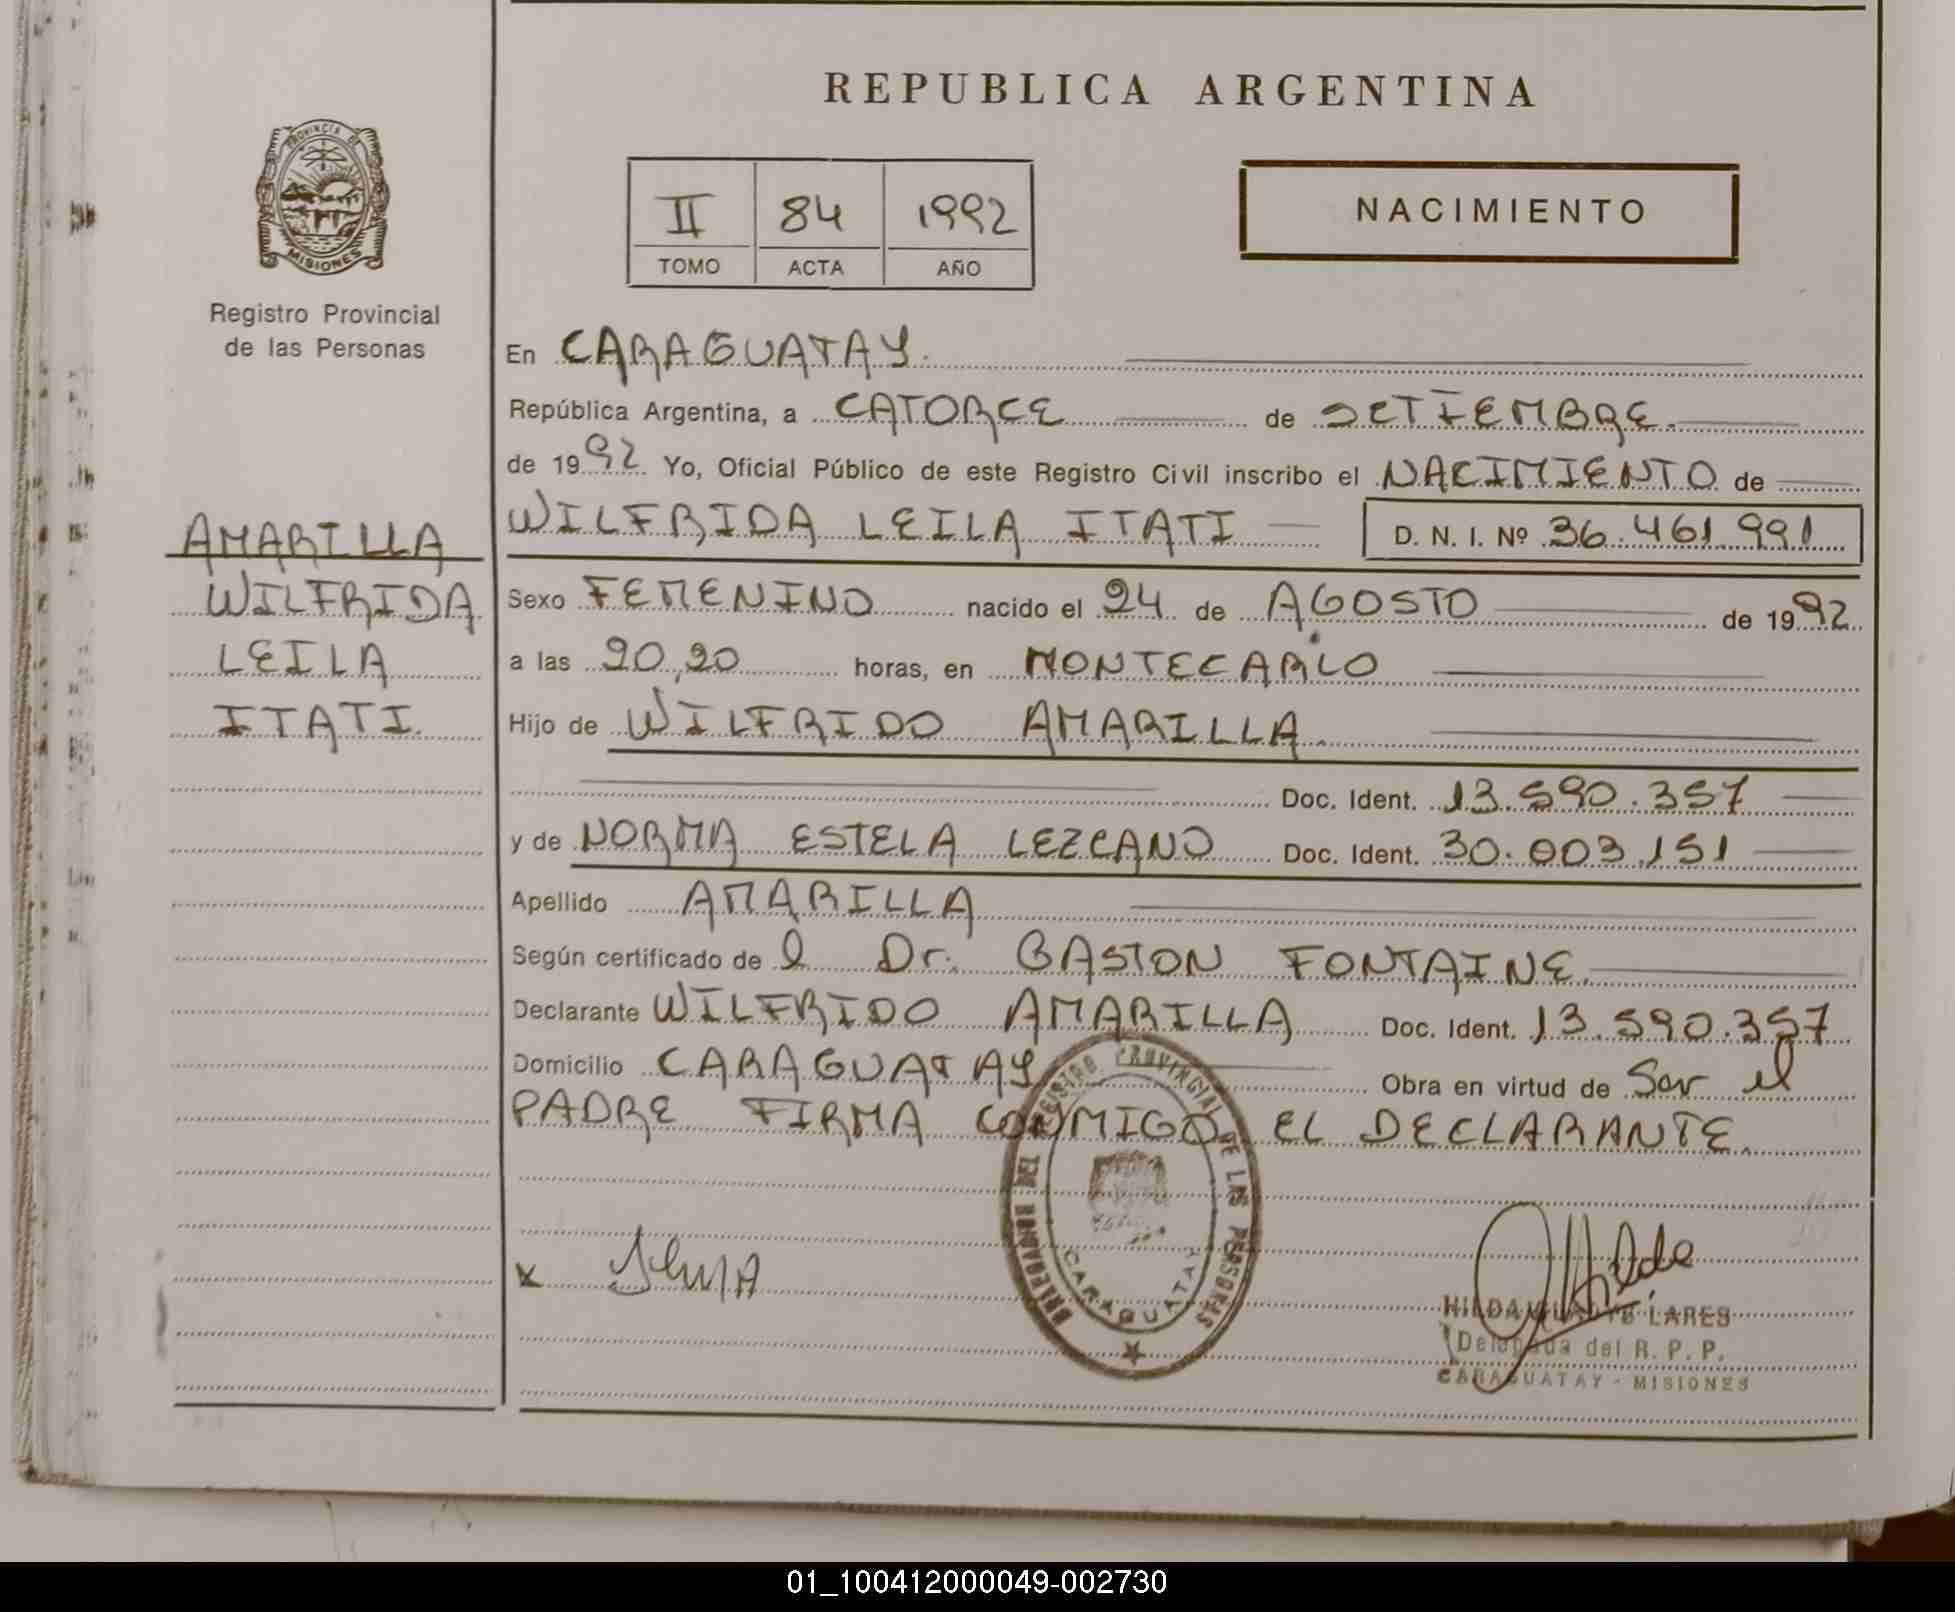 REPUBLICA ARGENTINA
PROVINCIA DE
MISIONES
Registro Provincial
de las Personas
II 84 1992
TOMO ACTA AÑO
NACIMIENTO
AMARILLA
WILFRIDA
LEILA
ITATI.
En CARAGUATAY.
República Argentina, a CATORCE de SETIEMBRE.
de 1992 Yo, Oficial Público de este Registro Civil inscribo el NACIMIENTO de
WILFRIDA LEILA ITATI D. N. I. Nº 36.461.991
Sexo FEMENINO nacido el 24 de AGOSTO de 1992
a las 20,20 horas, en MONTECARLO
Hijo de WILFRIDO AMARILLA.
Doc. Ident. 13.590.357
y de NORMA ESTELA LEZCANO Doc. Ident. 30.003.151
Apellido AMARILLA
Según certificado de l Dr. GASTON FONTAINE.
Declarante WILFRIDO AMARILLA Doc. Ident. 13.590.357
Domicilio CARAGUATAY Obra en virtud de Ser el
PADRE FIRMA CONMIGO EL DECLARANTE.
DEL REGISTRO PROVINCIAL DE LAS PERSONAS
CARAGUATAY
x
Hilda
HILDA LARES
Delegada del R. P. P.
CARAGUATAY - MISIONES
01_100412000049-002730